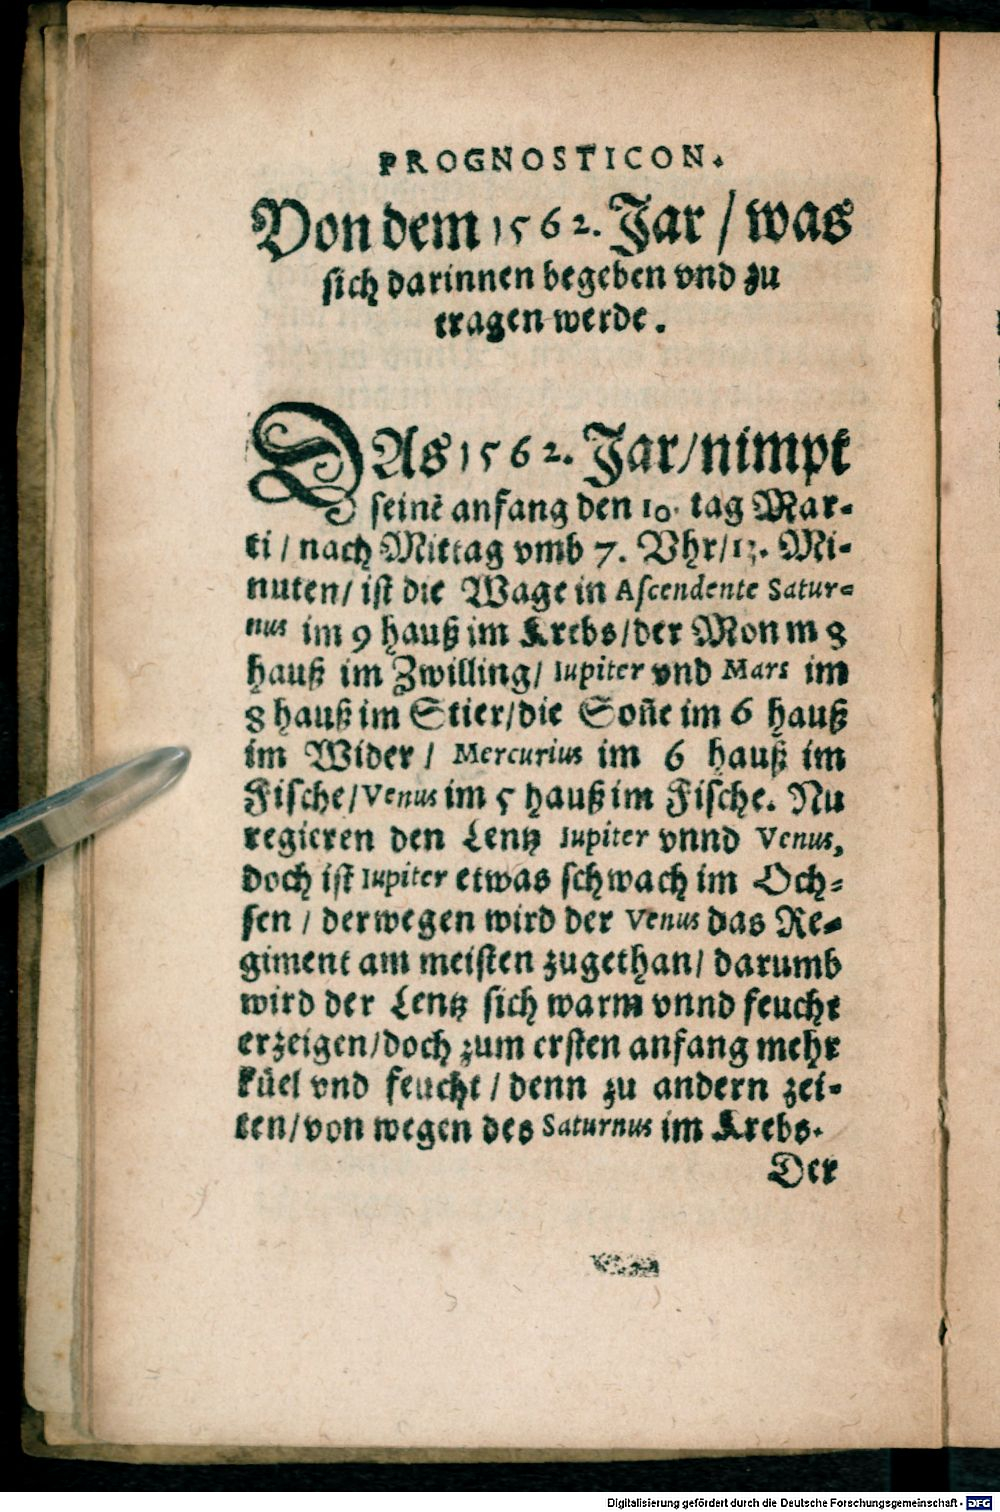 PROGNOSTICON.
Von dem 1562. Jar / was
sich darinnen begeben vnd zu
tragen werde.
DAs 1562. Jar / nimpt
seinē anfang den 10. tag Mar-
ti / nach Mittag vmb 7. Vhr / 13. Mi-
nuten / ist die Wage in Ascendente Satur-
nus im 9 hauß im Krebs / der Mon im 8
hauß im Zwilling / Iupiter vnd Mars im
8 hauß im Stier / die Soñe im 6 hauß
im Wider / Mercurius im 6 hauß im
Fische / Venus im 5 hauß im Fische. Nu
regieren den Lentz Iupiter vnnd Venus,
doch ist Iupiter etwas schwach im Och-
sen / derwegen wird der Venus das Re-
giment am meisten zugethan / darumb
wird der Lentz sich warm vnnd feucht
erzeigen / doch zum ersten anfang mehr
küel vnd feucht / denn zu andern zei-
ten / von wegen des Saturnus im Krebs.
Der
Digitalisierung gefördert durch die Deutsche Forschungsgemeinschaft - DFG